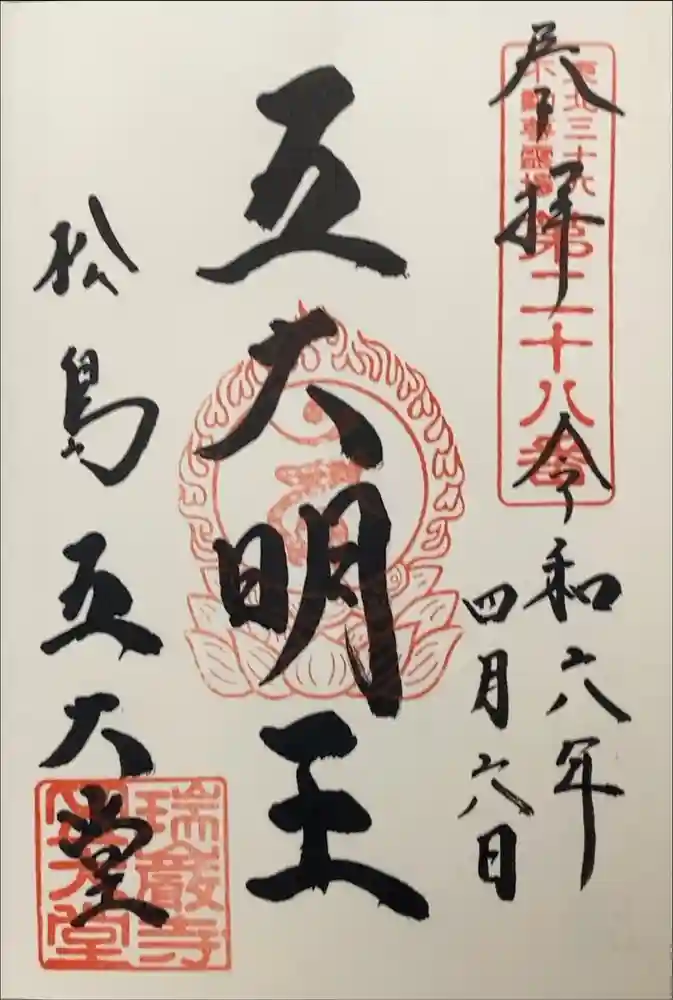 奉拝
令和六年
四月六日
東北三十六
不動尊霊場
第二十八番
五大明王
松島五大堂
瑞巌寺
五大堂